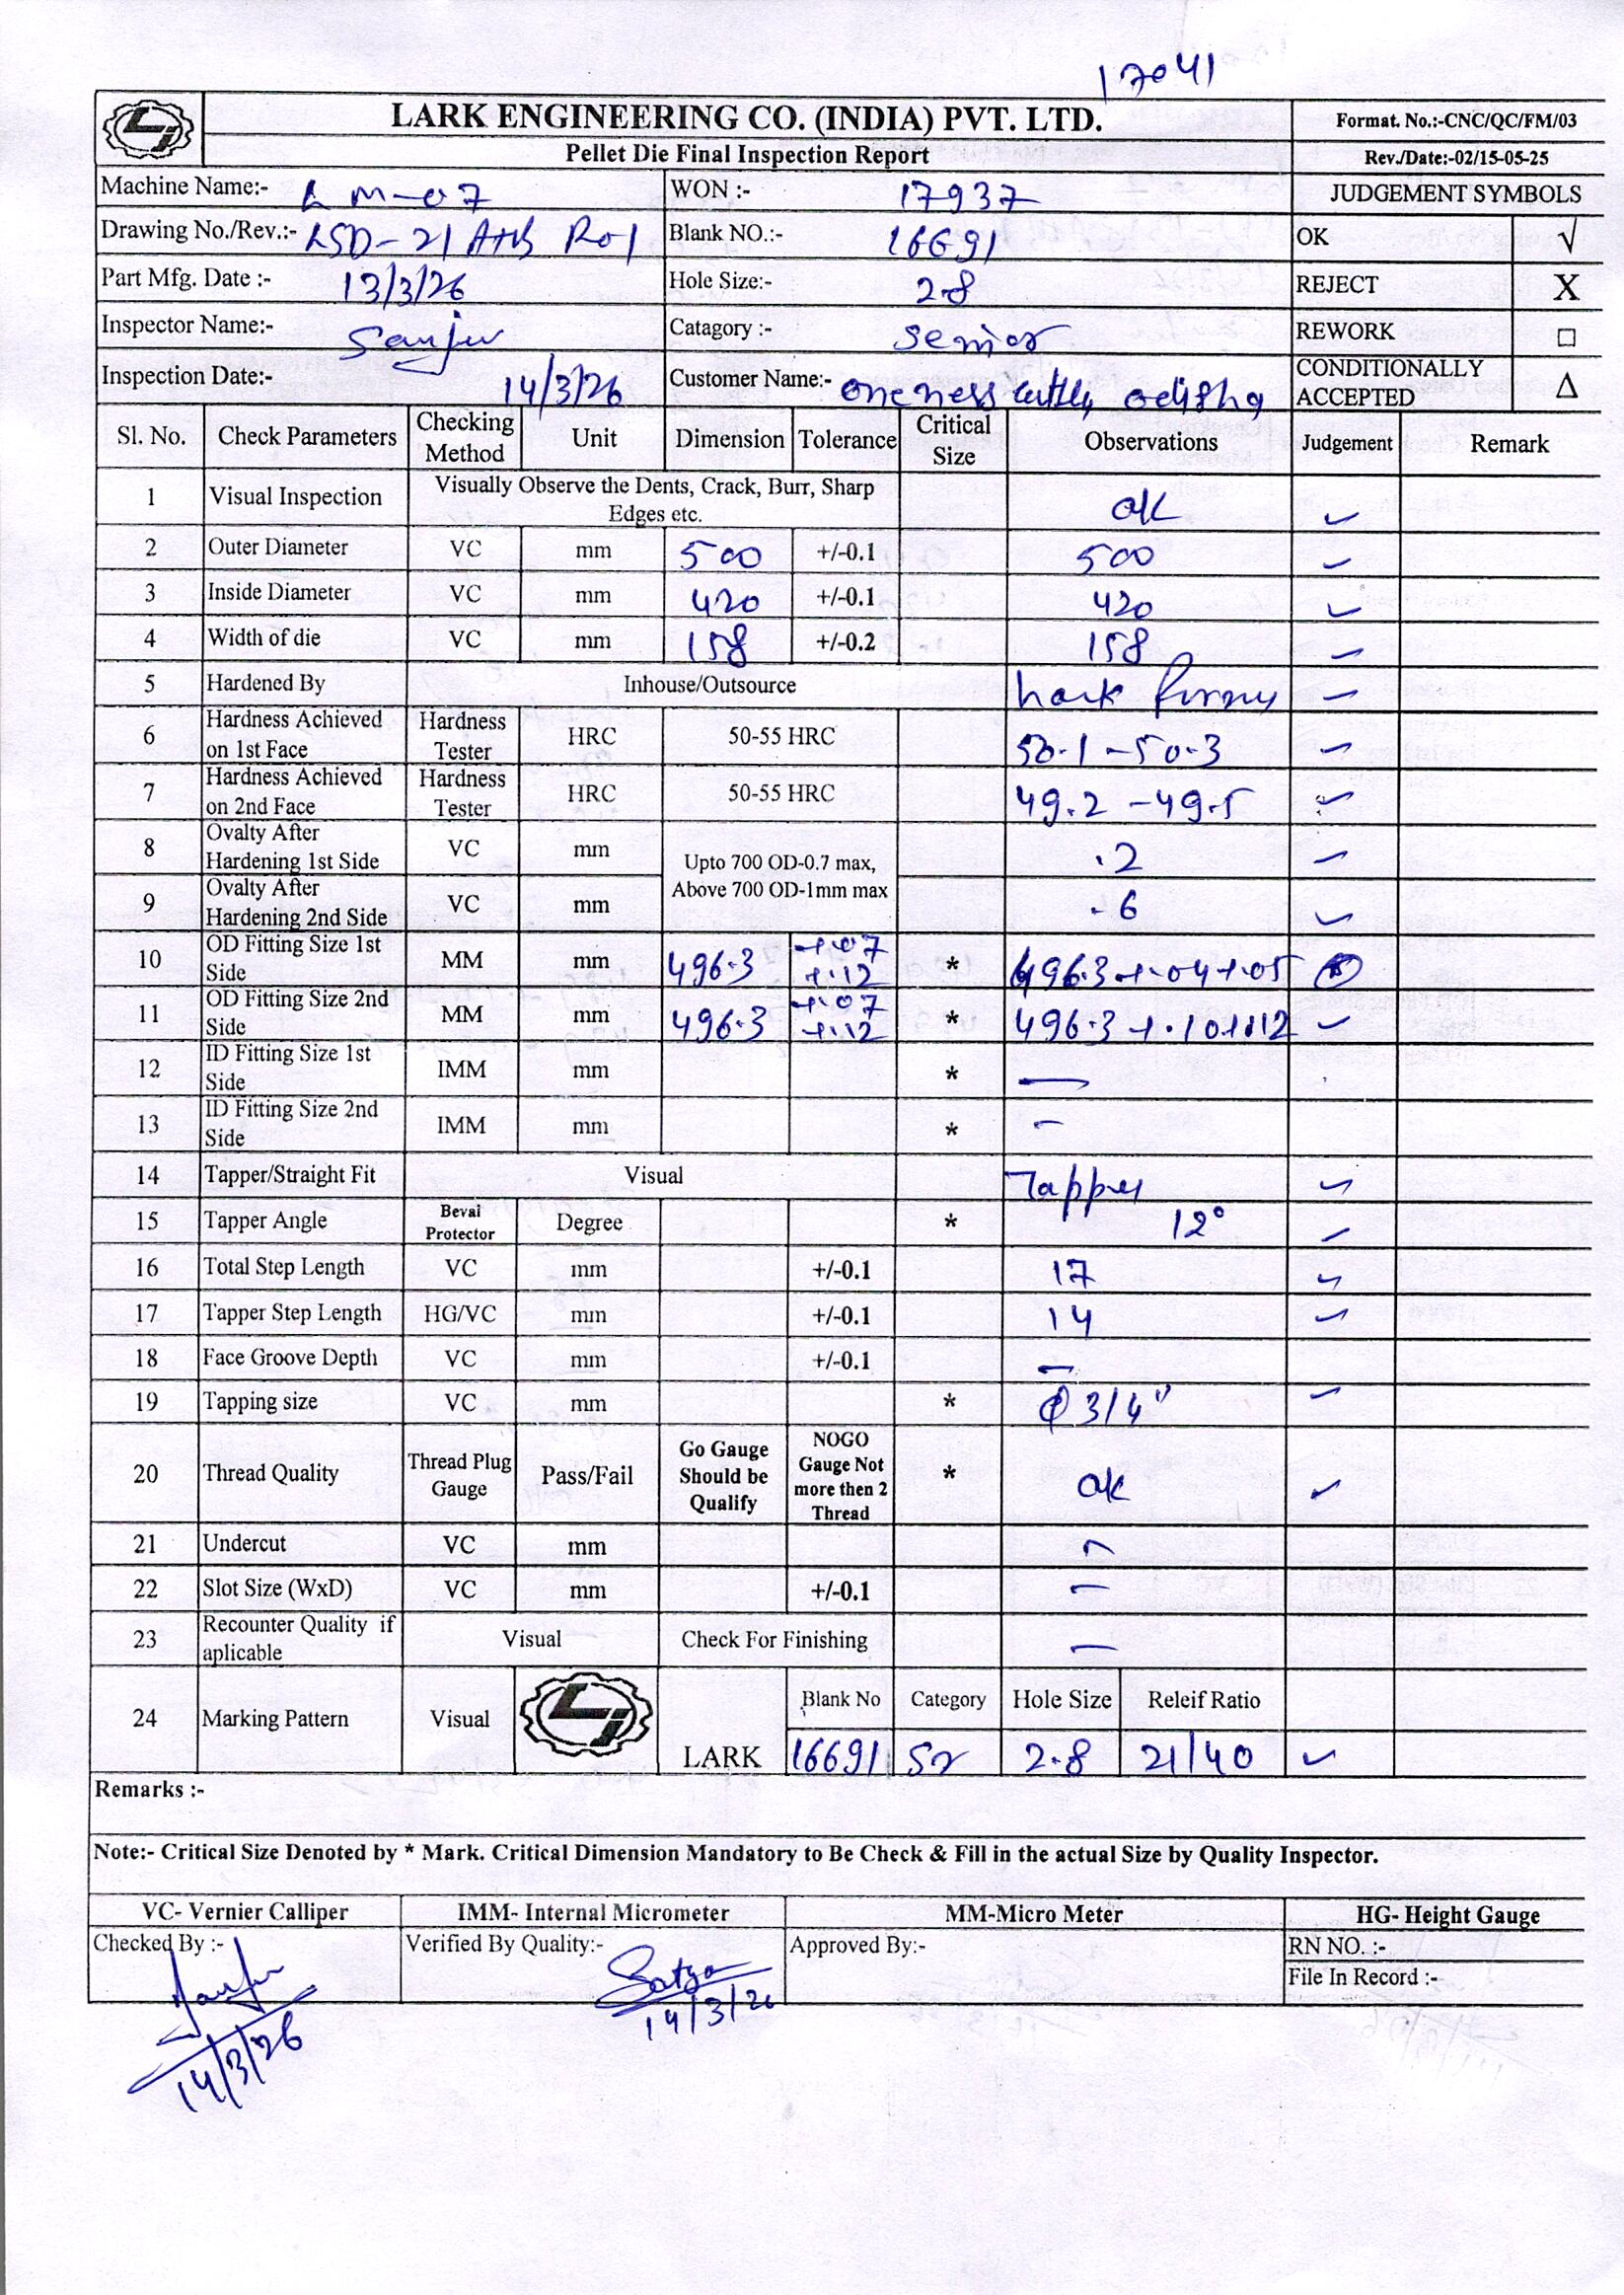 17041
LARK ENGINEERING CO. (INDIA) PVT. LTD.
Format. No.:-CNC/QC/FM/03
Pellet Die Final Inspection Report
Rev./Date:-02/15-05-25
Machine Name:- LM-07 WON :- 17937 JUDGEMENT SYMBOLS
Drawing No./Rev.:- LSD-21 A+B R01 Blank NO.:- 16691 OK √
Part Mfg. Date :- 13/3/26 Hole Size:- 2.8 REJECT X
Inspector Name:- Sanjiv Catagory :- Senior REWORK □
Inspection Date:- 14/3/26 Customer Name:- oneness odisha CONDITIONALLY ACCEPTED Δ
Sl. No. Check Parameters Checking Method Unit Dimension Tolerance Critical Size Observations Judgement Remark
1 Visual Inspection Visually Observe the Dents, Crack, Burr, Sharp Edges etc. ok ✓
2 Outer Diameter VC mm 500 +/-0.1 500 ✓
3 Inside Diameter VC mm 420 +/-0.1 420 ✓
4 Width of die VC mm 158 +/-0.2 158 ✓
5 Hardened By Inhouse/Outsource Lark ✓
6 Hardness Achieved on 1st Face Hardness Tester HRC 50-55 HRC 50.1 - 50.3 ✓
7 Hardness Achieved on 2nd Face Hardness Tester HRC 50-55 HRC 49.2 - 49.5 ✓
8 Ovalty After Hardening 1st Side VC mm Upto 700 OD-0.7 max, Above 700 OD-1mm max .2 ✓
9 Ovalty After Hardening 2nd Side VC mm .6 ✓
10 OD Fitting Size 1st Side MM mm 496.3 +.07 +.12 * 496.3 +.04 +.05
11 OD Fitting Size 2nd Side MM mm 496.3 +.07 +.12 * 496.3 +.10 +.12 ✓
12 ID Fitting Size 1st Side IMM mm * —
13 ID Fitting Size 2nd Side IMM mm * —
14 Tapper/Straight Fit Visual Tapper ✓
15 Tapper Angle Beval Protector Degree * 12° ✓
16 Total Step Length VC mm +/-0.1 17 ✓
17 Tapper Step Length HG/VC mm +/-0.1 14 ✓
18 Face Groove Depth VC mm +/-0.1 —
19 Tapping size VC mm * ϕ 3/4" ✓
20 Thread Quality Thread Plug Gauge Pass/Fail Go Gauge Should be Qualify NOGO Gauge Not more then 2 Thread * ok ✓
21 Undercut VC mm —
22 Slot Size (WxD) VC mm +/-0.1 —
23 Recounter Quality if aplicable Visual Check For Finishing —
24 Marking Pattern Visual LARK Blank No Category Hole Size Releif Ratio
16691 Sr 2.8 21/40 ✓
Remarks :-
Note:- Critical Size Denoted by * Mark. Critical Dimension Mandatory to Be Check & Fill in the actual Size by Quality Inspector.
VC- Vernier Calliper IMM- Internal Micrometer MM-Micro Meter HG- Height Gauge
Checked By :- Sanjiv Verified By Quality:- Satya Approved By:- RN NO. :-
File In Record :-
14/3/26
14/3/26